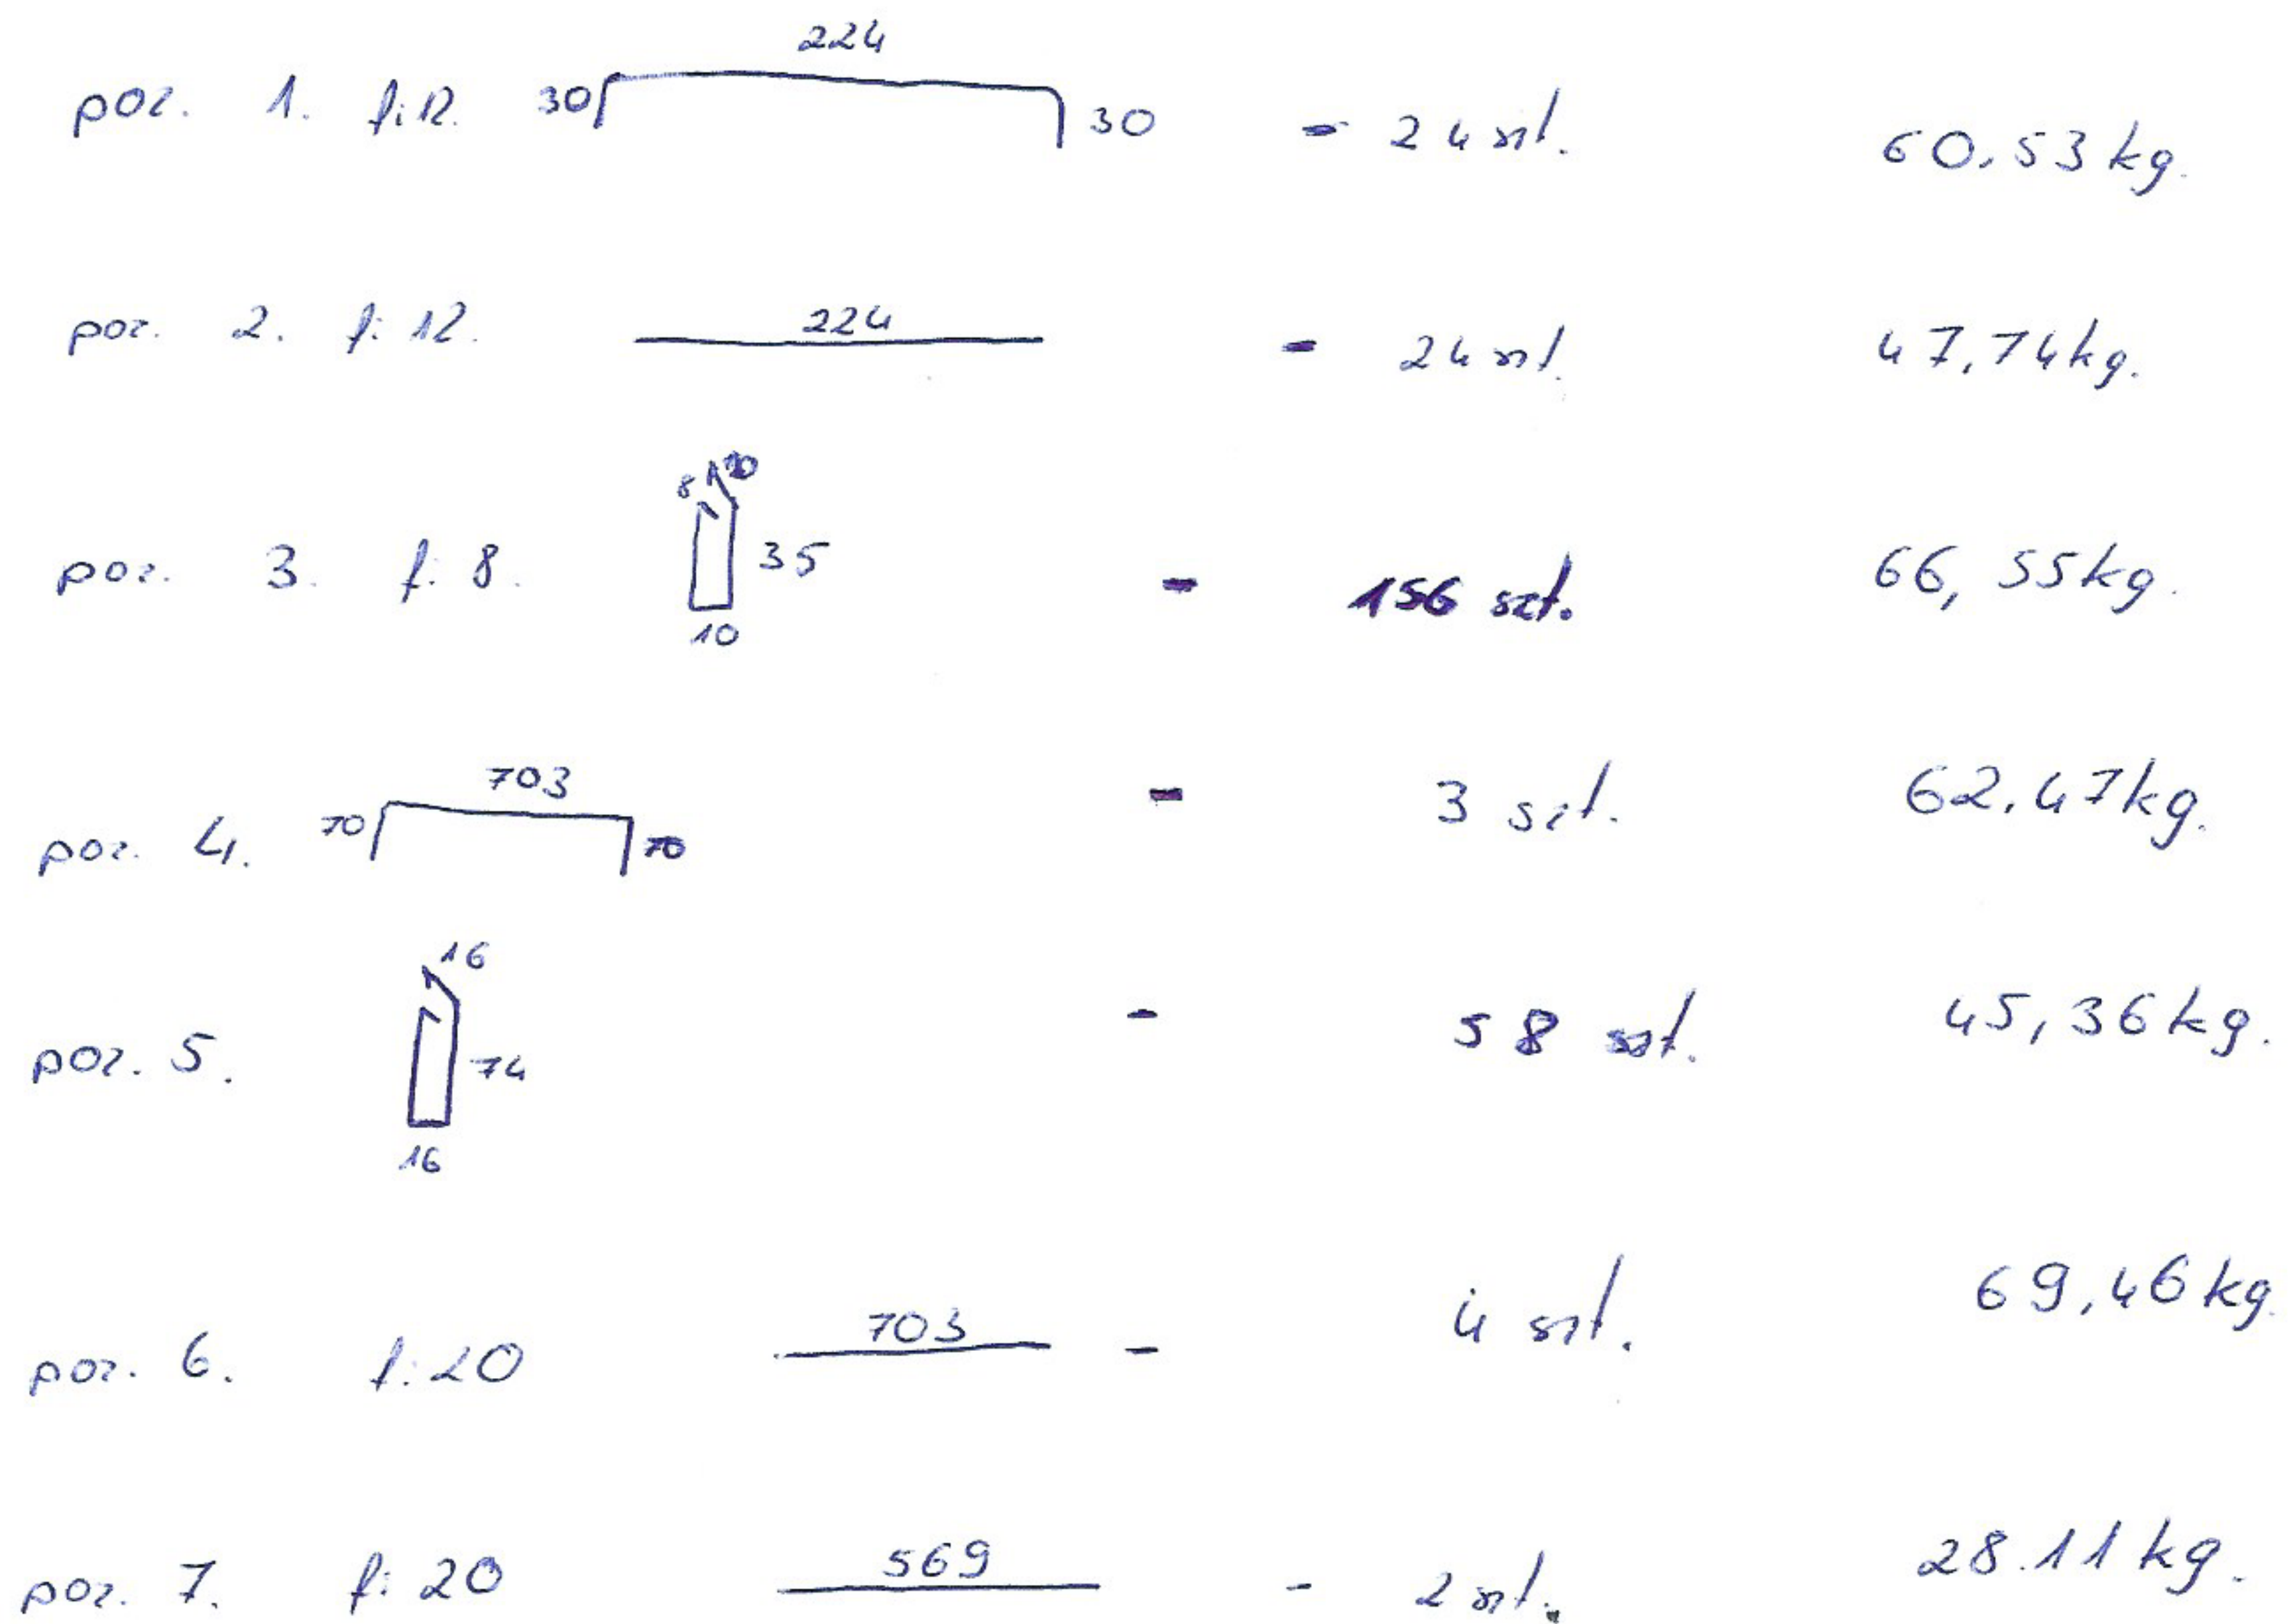 224
poz. 1. fi 12. 30 30 - 24 szt. 60,53 kg.
poz. 2. fi 12. 224 - 24 szt. 47,74 kg.
8 10
poz. 3. fi 8. 35 - 156 szt. 66,55 kg.
10
703
poz. 4. 70 70 - 3 szt. 62,47 kg.
16
poz. 5. 74 - 58 szt. 45,36 kg.
16
poz. 6. fi 20 703 - 4 szt. 69,46 kg.
poz. 7. fi 20 569 - 2 szt. 28.11 kg.